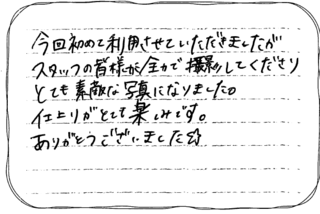 今回初めて利用させていただきましたが
スタッフの皆様が全力で撮影してくださり
とても素敵な写真になりました。
仕上りがとても楽しみです。
ありがとうございました☆